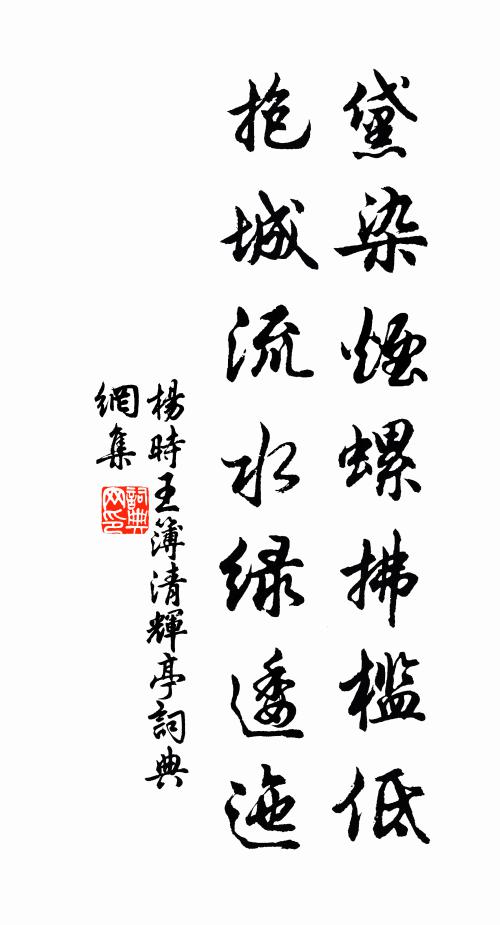 黛染煙螺拂檻低
抱城流水綠逶迤
楊時王簿清輝亭詞典
網集
詞典
网印